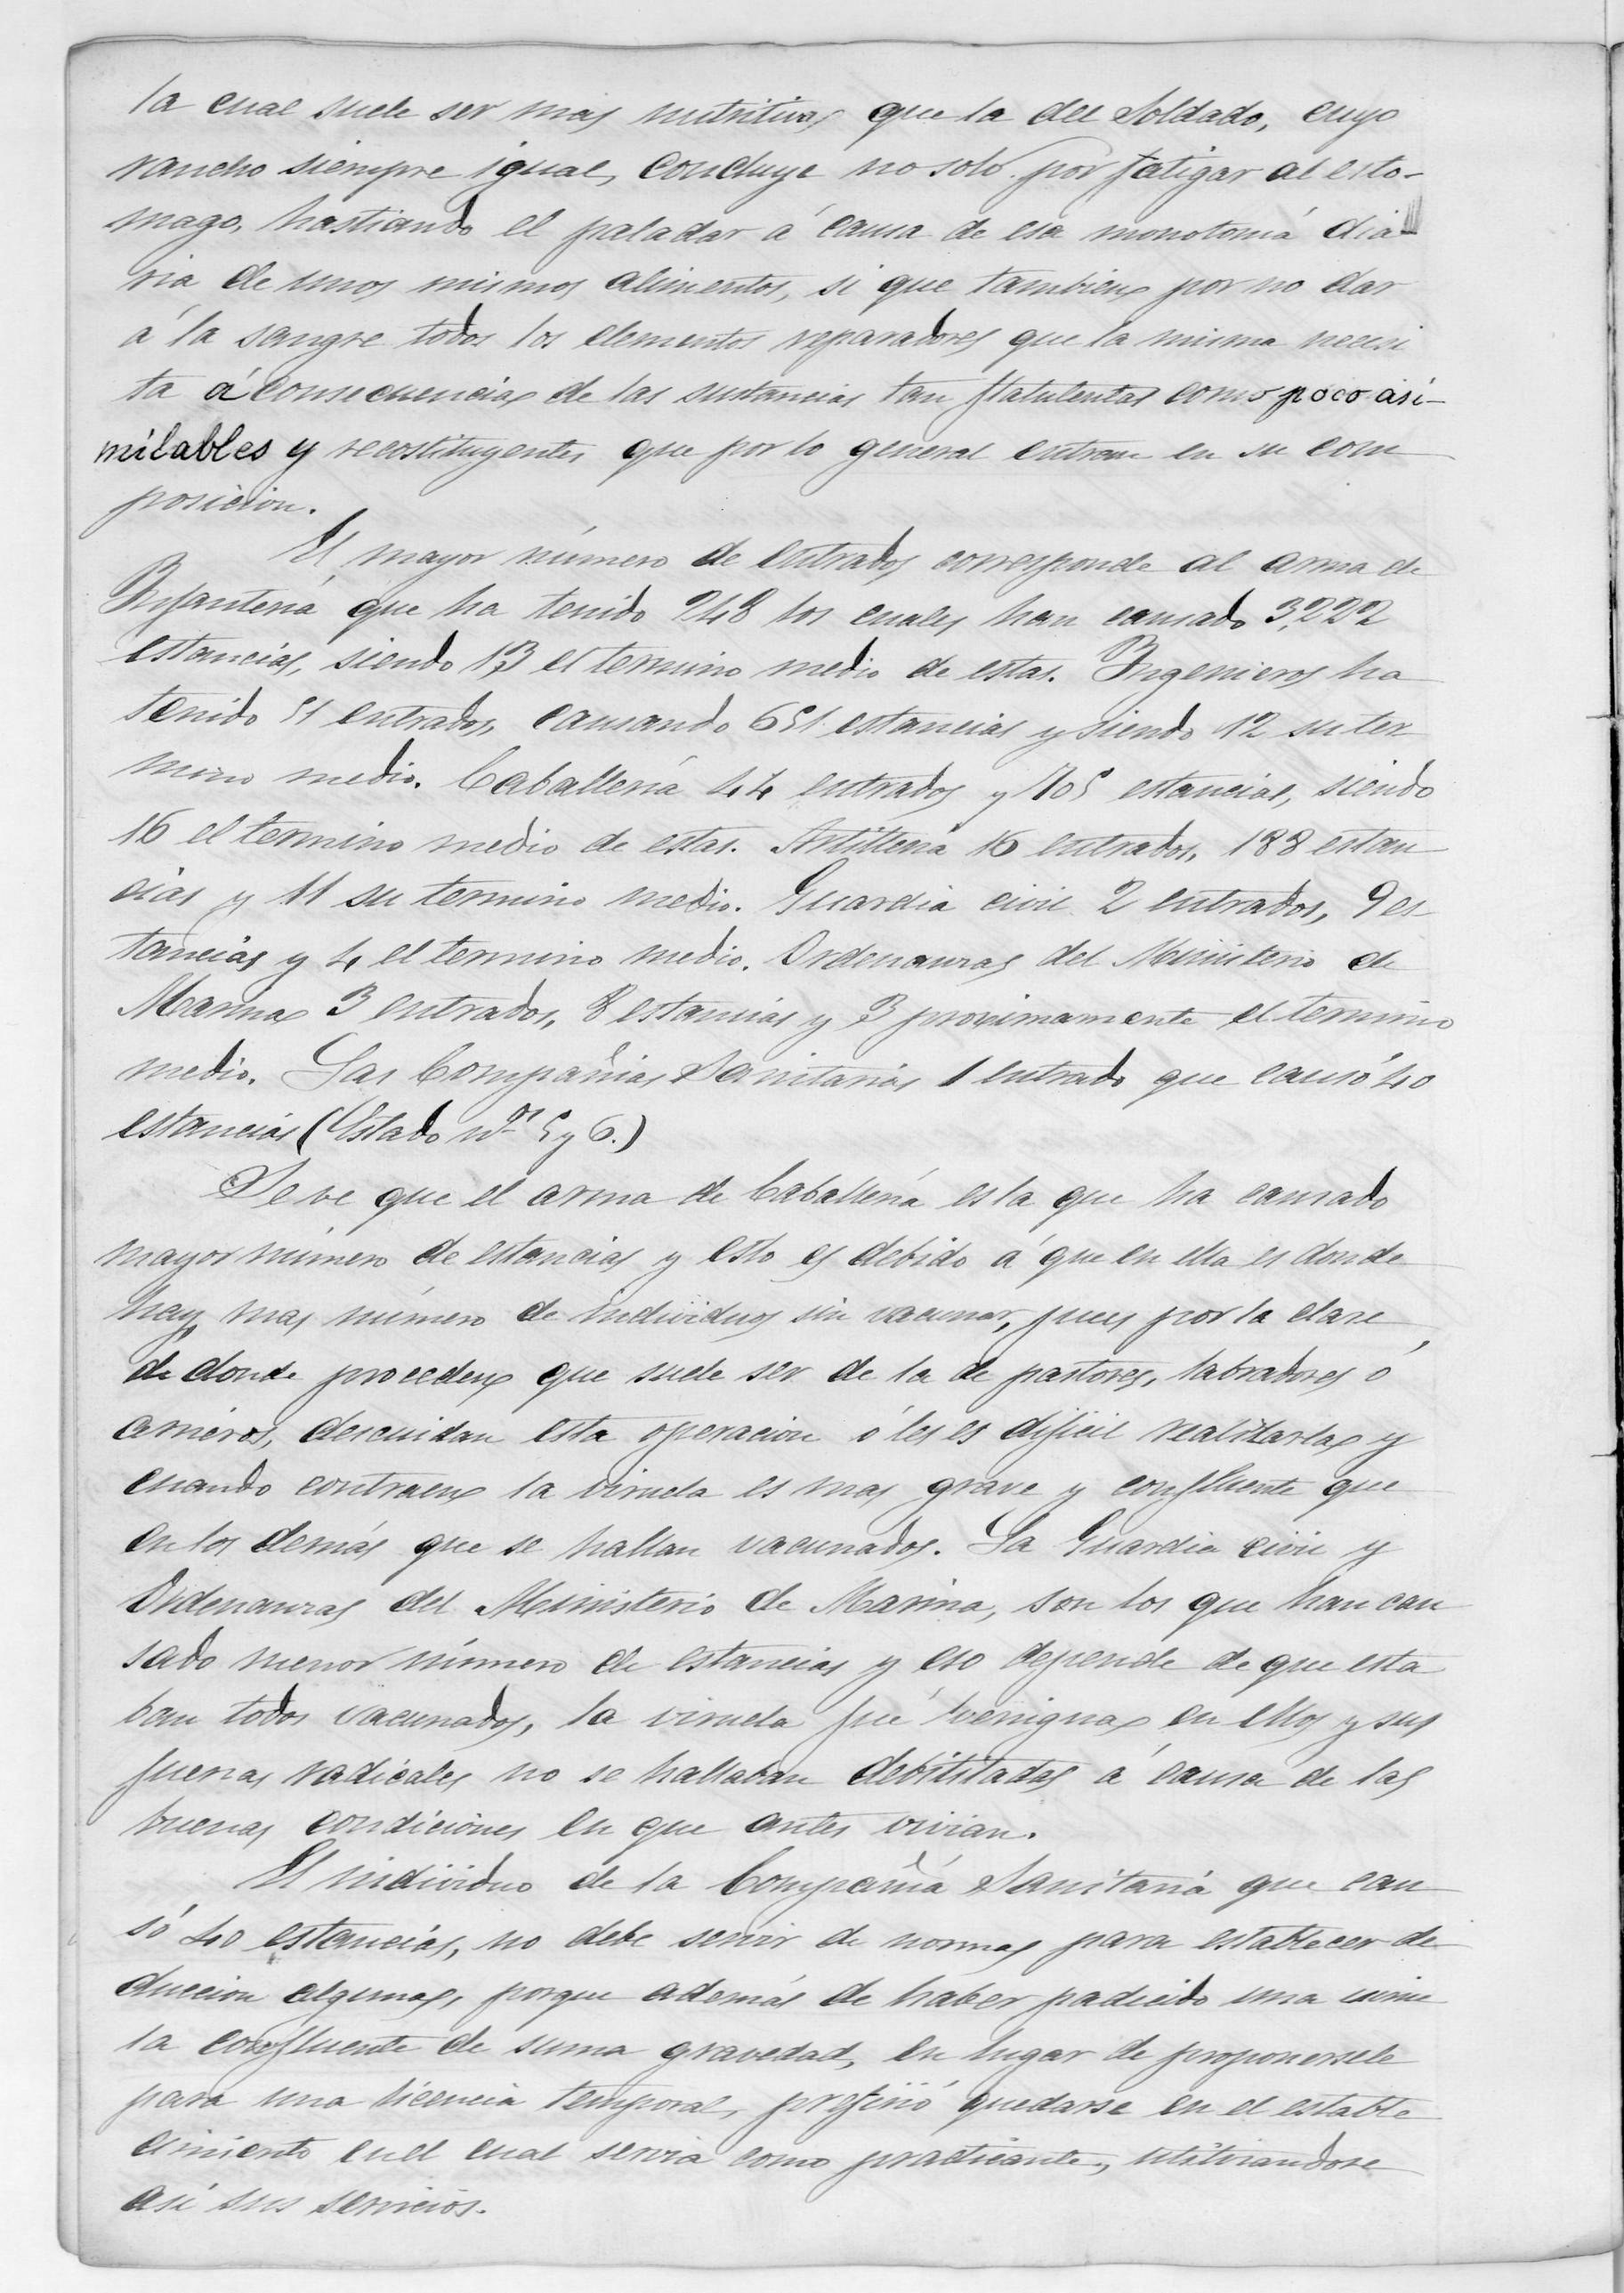 la cual suele ser mas nutritiva que la del Soldado, cuyo
rancho siempre igual, concluye no solo por fatigar al esto-
mago, hastiando el paladar á causa de esa monotomiá dia-
ria de unos mismos alimentos, si que tambien por no dar
á la sangre todos los elementos reparadores que la misma necesi
ta á consecuencia de las sustancias tan flatulentas como poco asi-
milables y recostituyentes que por lo general entran en su com
posicion.
El mayor número de entrados corresponde al arma de
Infanteriá que ha tenido 248 los cuales han causado 3,222
estancias, siendo 13 el termino medio de estas. Ingenieros ha
tenido 51 entrados, causando 651 estancias y siendo 12 su ter
mino medio. Caballeria 44 entrados y 705 estancias, siendo
16 el termino medio de estas. Artilleria 16 entrados, 188 estan
cias y 11 su termino medio. Guardia civil 2 entrados, 9 es-
tancias y 4 el termino medio. Ordenanzas del Ministerio de
Marina 3 entrados, 8 estancias y 3 proximamente el termino
medio. Las Compañias Sanitarias 1 entrado que causó 40
estancias (Estado nos 5 y 6.)
Se ve que el arma de Caballería es la que ha causado
mayor número de estancias y esto es debido á que en ella es donde
hay mas número de individuos sin vacunar, pues por la clase
de donde proceden que suele ser de la de pastores, labradores ó
arrieros, descuidan esta operacion ó les es dificil realizarla y
cuando contraen la viruela es mas grave y confluente que
en los demás que se hallan vacunados. La Guardia civil y
Ordenanzas del Ministerio de Marina, son los que han cau
sado menor número de estancias y eso depende de que esta
ban todos vacunados, la viruela fué benigna en ellos y sus
fuerzas radicales no se hallaban debilitadas á causa de las
buenas condiciones en que antes vivian.
El individuo de la Compañia Sanitaria que cau
só 40 estancias, no debe servir de norma para establecer de
duccion alguna, porque además de haber padecido una virue
la confluente de suma gravedad, en lugar de proponersele
para una licencia temporal, prefirió quedarse en el estable
cimiento en el cual servia como practicante, utilizandose
asi sus servicios.